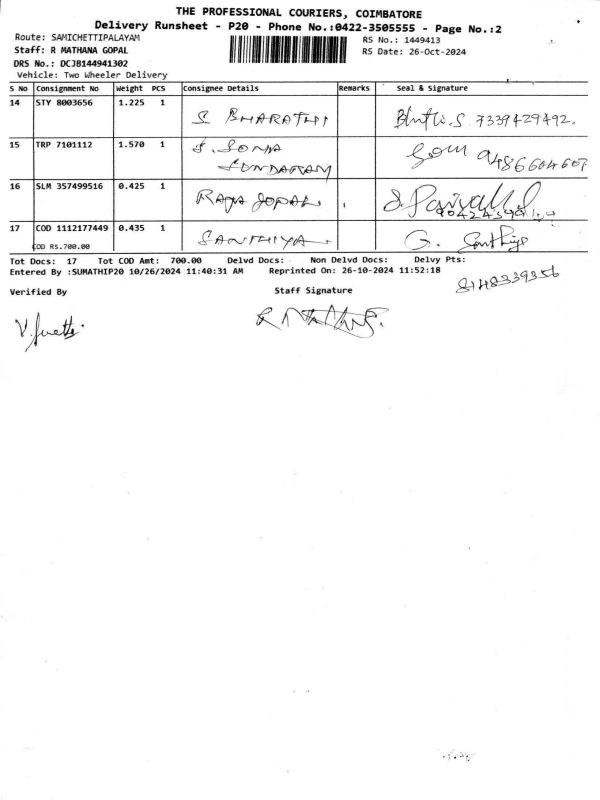 THE PROFESSIONAL COURIERS, COIMBATORE
Delivery Runsheet - P20 - Phone No.:0422-3505555 - Page No.:2
Route: SAMICHETTIPALAYAM RS No.: 1449413
Staff: R MATHANA GOPAL RS Date: 26-Oct-2024
DRS No.: DCJB144941302
Vehicle: Two Wheeler Delivery
S No Consignment No Weight PCS Consignee Details Remarks Seal & Signature
14 STY 8003656 1.225 1 S BHARATHI Bharathi.S 7339429492.
15 TRP 7101112 1.570 1 S. SONIA 9486604607
SUNDARAM
16 SLM 357499516 0.425 1 RAJA GOPAL
17 COD 1112177449 0.435 1 SANTHIYA G. Santhiya
COD RS.700.00
Tot Docs: 17 Tot COD Amt: 700.00 Delvd Docs: Non Delvd Docs: Delvy Pts:
Entered By :SUMATHIP20 10/26/2024 11:40:31 AM Reprinted On: 26-10-2024 11:52:18 8148339356
Verified By Staff Signature